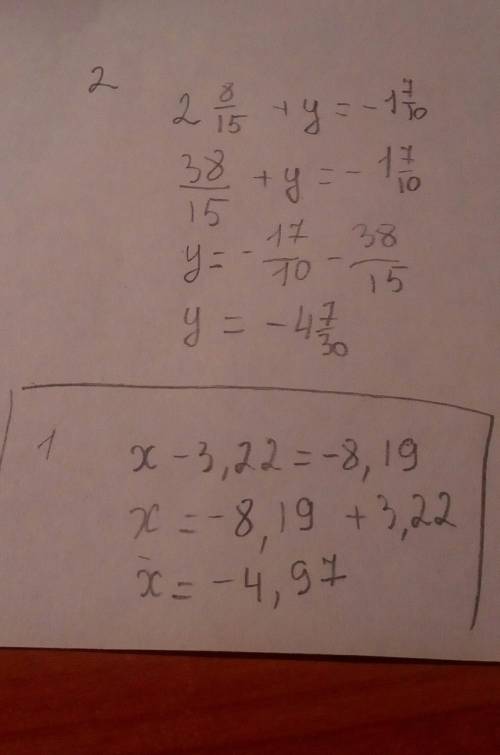 2
2 8/15 + y = - 1 7/10
38/15 + y = - 1 7/10
y = - 17/10 - 38/15
y = - 4 7/30
1
x - 3,22 = -8,19
x = -8,19 + 3,22
x = -4,97